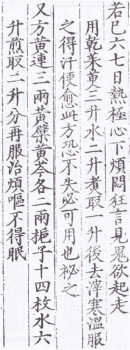 若已六七日熱極心下煩悶狂言見鬼欲起走
用乾茱萸三升水二升煮取一升後去滓寒温服
之得汗便愈此方恐不失必可用也秘之
又方黄連三兩黄蘗黄芩各二兩梔子十四枚水六
升煎取二升分再服治煩嘔不得眠